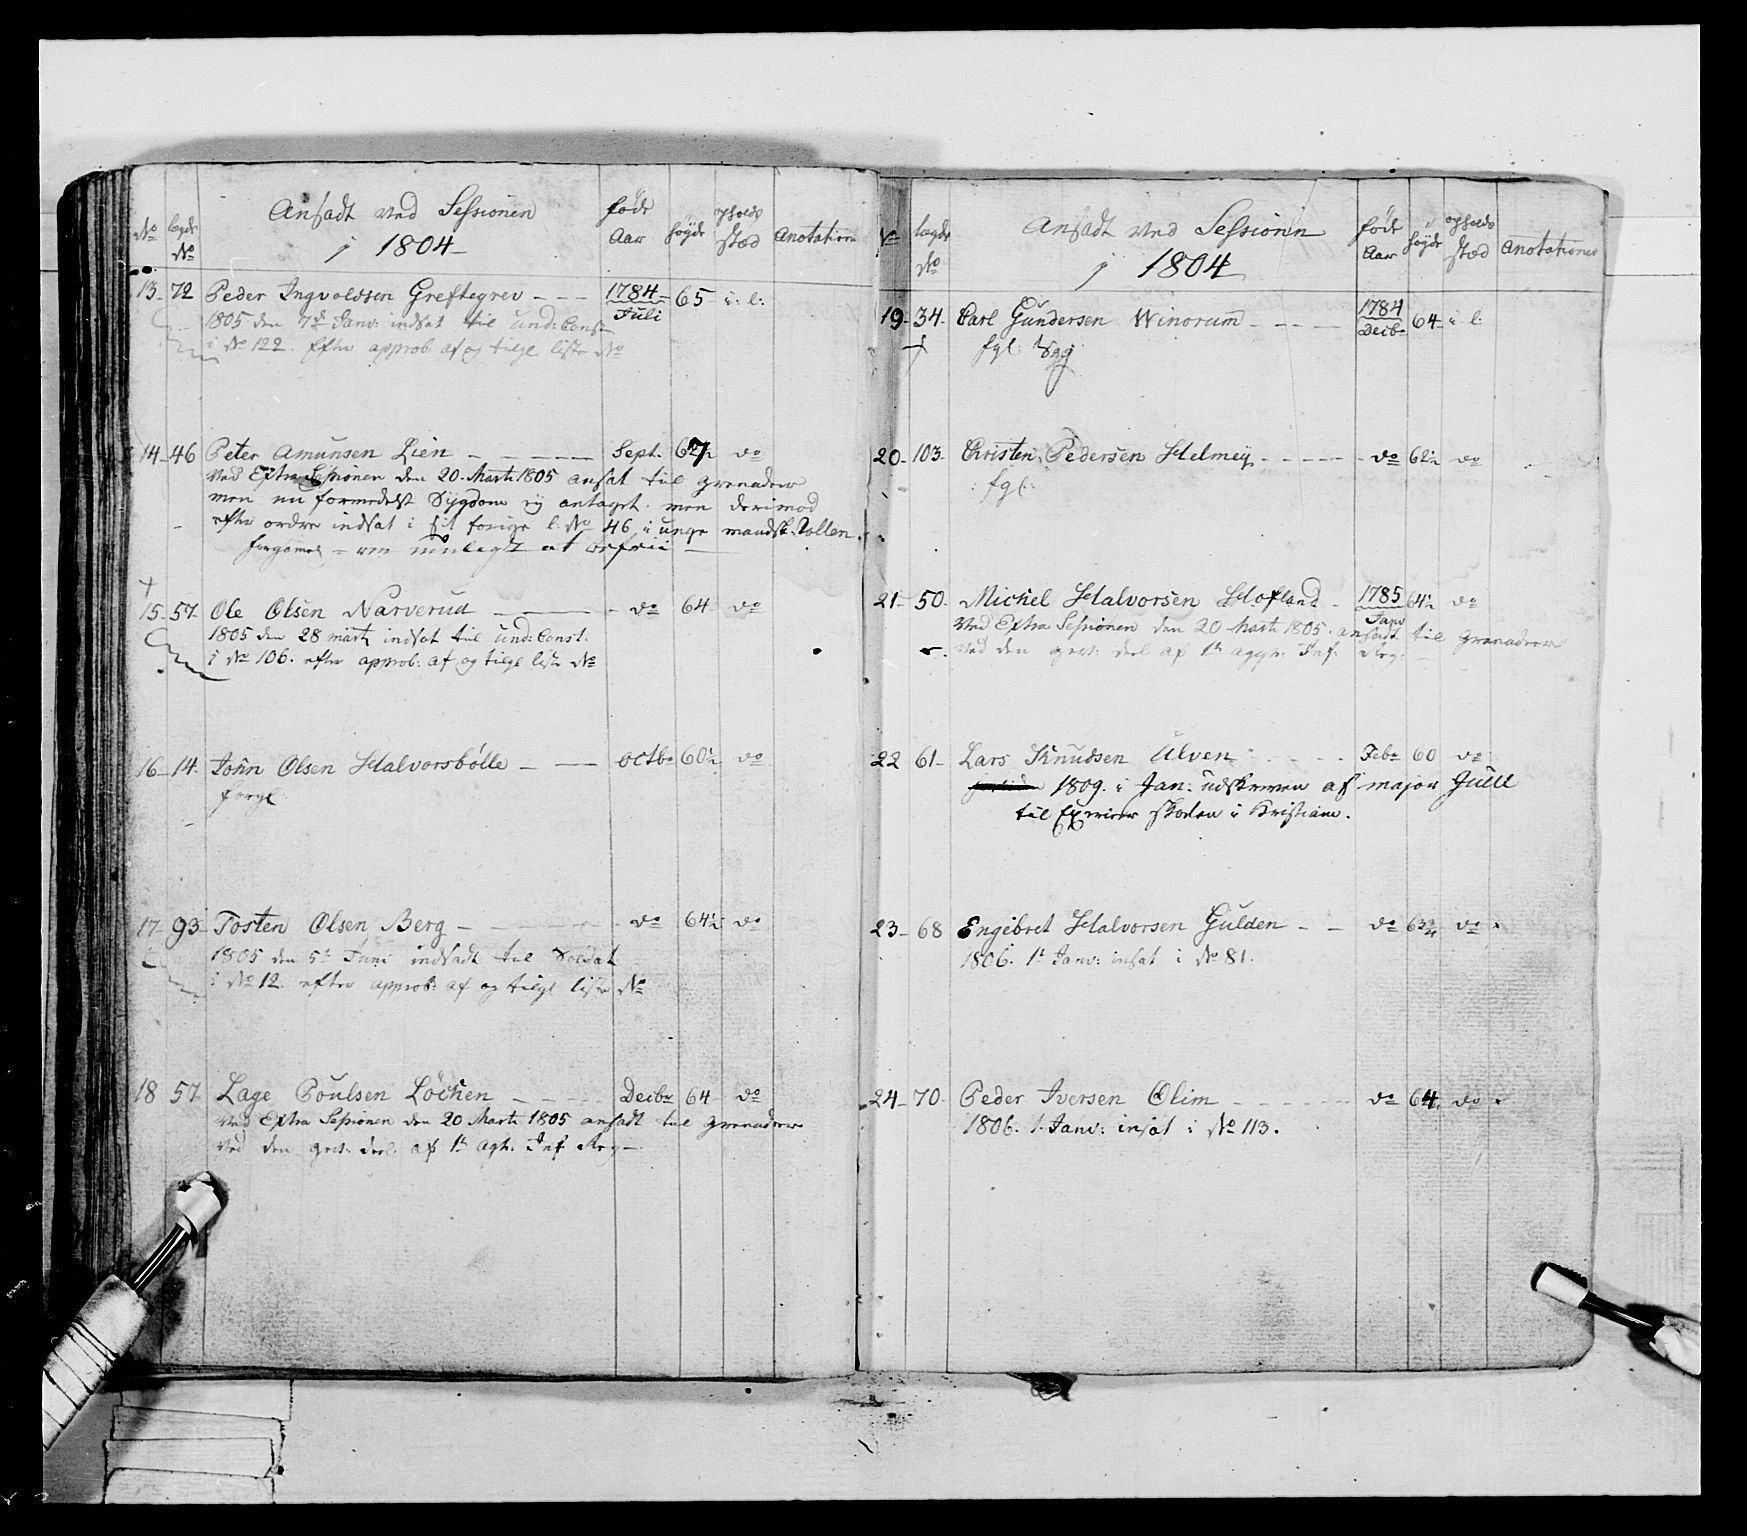 No lægds No Ansadt ved Sessionen i 1804 føde Aar høyde opholds stæd Anotation
13 72 Peder Ingvoldsen Greftegrev 1784 Juli 65 i: l:
1805 den 7de Janv: indsat til und: Const:
i No 122. efter approb: af og tilgl liste No
14 46 Peter Amunsen Lien Sept. 67 do
Ved Extra Sessionen den 20 Marti 1805 ansat til grenadeer
men nu formedelst Sygdom ej antaget. men derimod
efter ordre indsat i sit forige l. No 46 i unge mandsk: Rollen.
15 57 Ole Olsen Narverud do 64 do
1805 den 28 marti indsat til und: Const:
i No 106. efter approb: af og tilgl liste No
16 14 John Olsen Halvorsbölle Octbr 60½ do
forgl
17 93 Tosten Olsen Berg do 64½ do
1805 den 5t Juni indsadt til Soldat
i No 12. efter approb: af og tilgl liste No
18 57 Lage Poulsen Löchen Decbr 64 do
Ved Extra Sessionen den 20 Marti 1805 ansadt til grenadeer
ved den deel af 1t Agh: Inf Reg
No lægds No Ansadt ved Sessionen i 1804 føde Aar høyde opholds stæd Anotationer
19 34 Carl Gundersen Winorum 1784 Decbr 64 i: l:
fgl: Syg
20 103 Christen Pedersen Helmey do 62½ do
fgl:
21 50 Michel Halvorsen Hofland 1785 Janv 64½ do
Ved Extra Sessionen den 20 Marti 1805 ansadt til grenadeer
ved den deel af 1t aggh: Inf: Reg:
22 61 Lars Knudsen Ulven Febr 60 do
1809. i Jan: udskreven af major Juell
til Exerceer skolen i Kristiania.
23 68 Engebret Halvorsen Gulden do 63¾ do
1806. 1t Janv: insat i No 81.
24 70 Peder Iversen Olim do 64 do
1806. 1. Janv: insat i No 113.